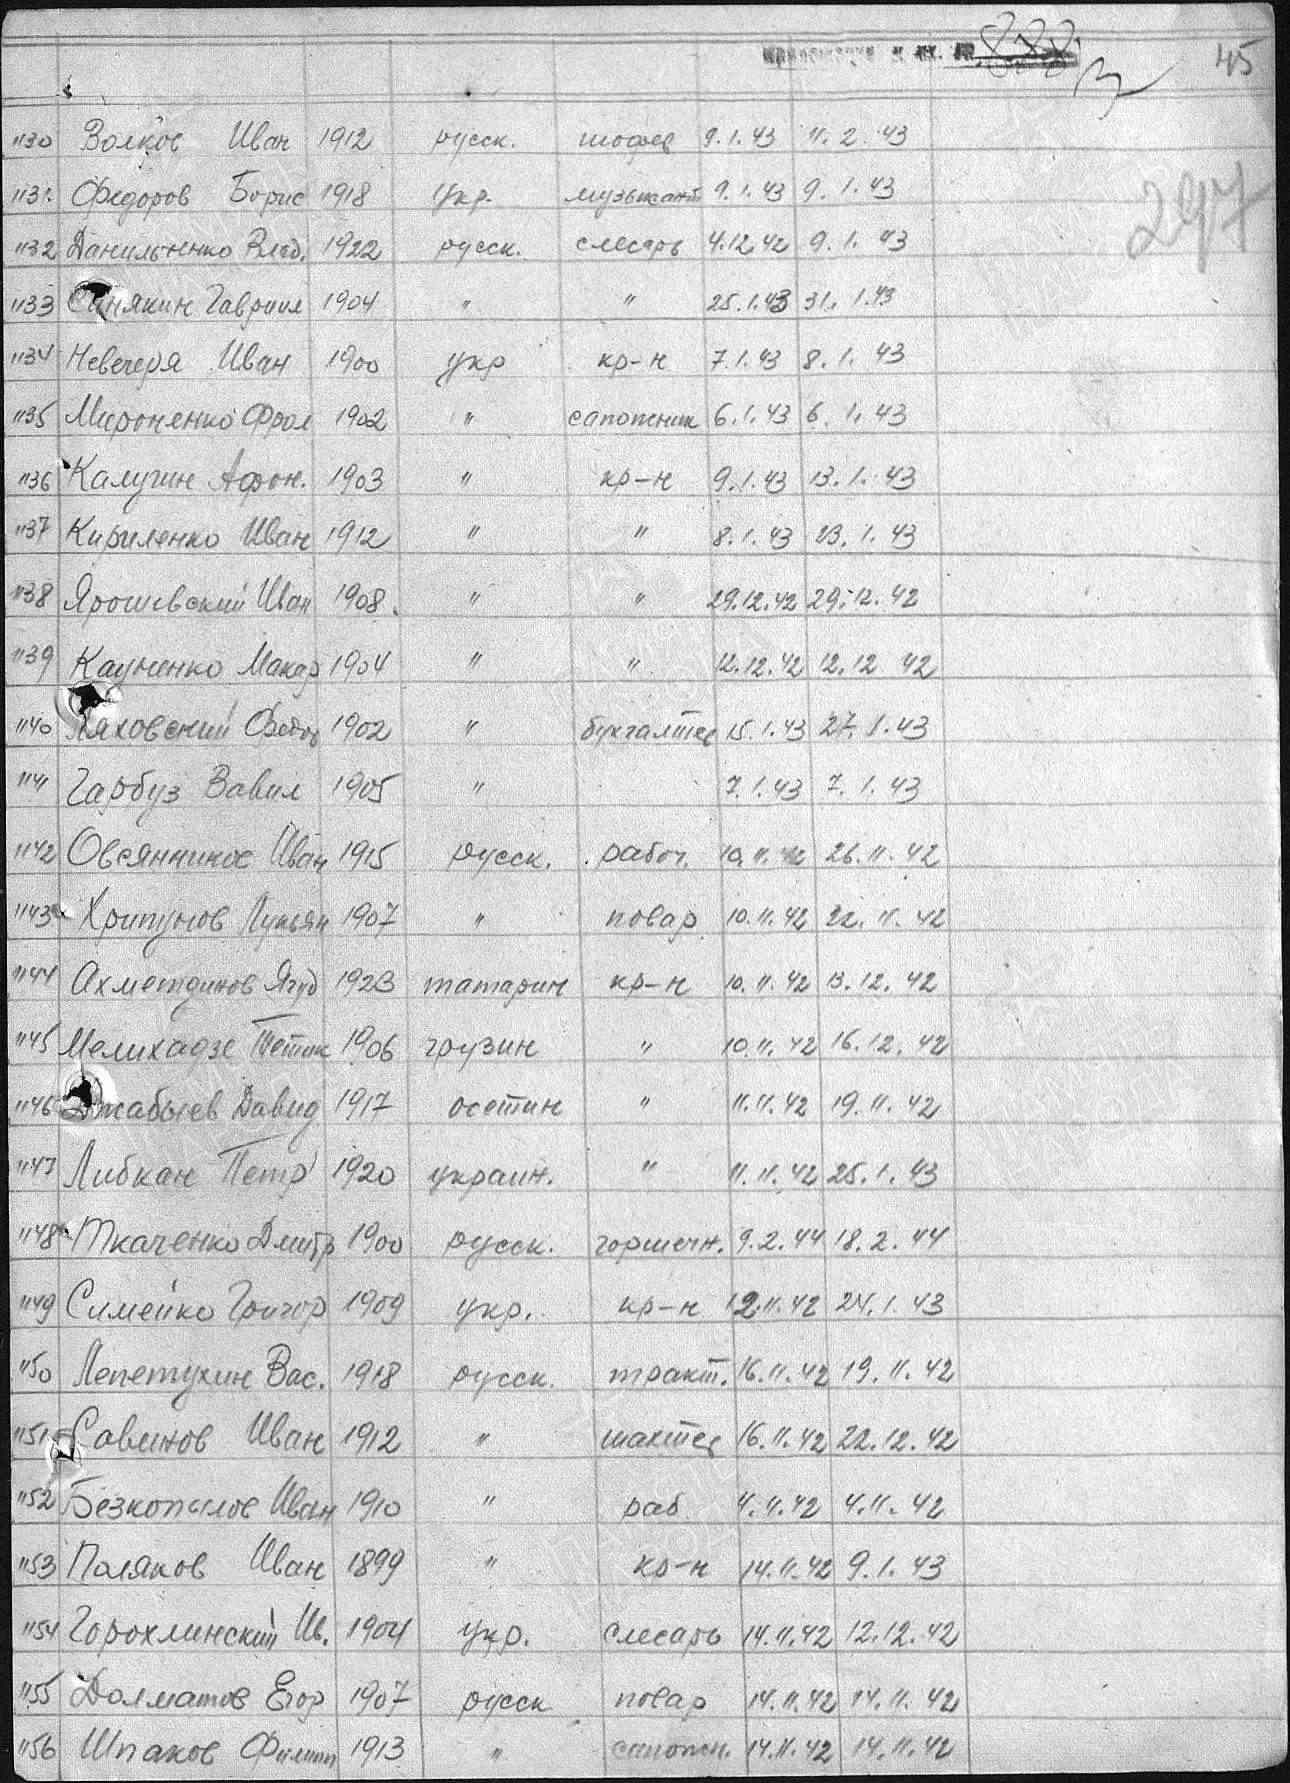 45
297
1130 Волков Иван 1912 русск. шофер 9.1.43 11.2.43
1131. Федоров Борис 1918 укр. музыкант 9.1.43 9.1.43
1132 Данильченко Влад. 1922 русск. слесарь 4.12.42 9.1.43
1133 Синякин Гавриил 1904 " " 25.1.43 31.1.43
1134 Невечеря Иван 1900 укр кр-н 7.1.43 8.1.43
1135 Мироненко Фрол 1902 " сапожник 6.1.43 6.1.43
1136 Калугин Афон. 1903 " кр-н 9.1.43 13.1.43
1137 Кириленко Иван 1912 " " 8.1.43 23.1.43
1138 Ярошевский Иван 1908. " " 29.12.42 29.12.42
1139 Макар 1904 " " 12.12.42 12.12.42
1140 Ляховский Федор 1902 " бухгалтер 15.1.43 27.1.43
1141 Гарбуз Вавил 1905 " 7.1.43 7.1.43
1142 Овсянников Иван 1915 русск. рабоч. 10.11.42 26.11.42
1143 Хрипунов Лукьян 1907 " повар 10.11.42 22.11.42
1144 Ахметдинов Ягуд 1923 татарин кр-н 10.11.42 13.12.42
1145 Мелихадзе 1906 грузин " 10.11.42 16.12.42
1146 Джабыев Давид 1917 осетин " 11.11.42 19.11.42
1147 Либкан Петр 1920 украин. " 11.11.42 25.1.43
1148 Ткаченко Дмитр 1900 русск. горшечн. 9.2.44 18.2.44
1149 Симейко Григор 1909 укр. кр-н 12.11.42 24.1.43
1150 Лепетухин Вас. 1918 русск. тракт. 16.11.42 19.11.42
1151 Савинов Иван 1912 " шахтер 16.11.42 22.12.42
1152 Безкопылов Иван 1910 " раб. 4.11.42 4.11.42
1153 Поляков Иван 1899 " кр-н 14.11.42 9.1.43
1154 Горохлинский Ив. 1904 укр. слесарь 14.11.42 12.12.42
1155 Долматов Егор 1907 русск повар 14.11.42 14.11.42
1156 Шпаков Филипп 1913 " сапожн. 14.11.42 14.11.42